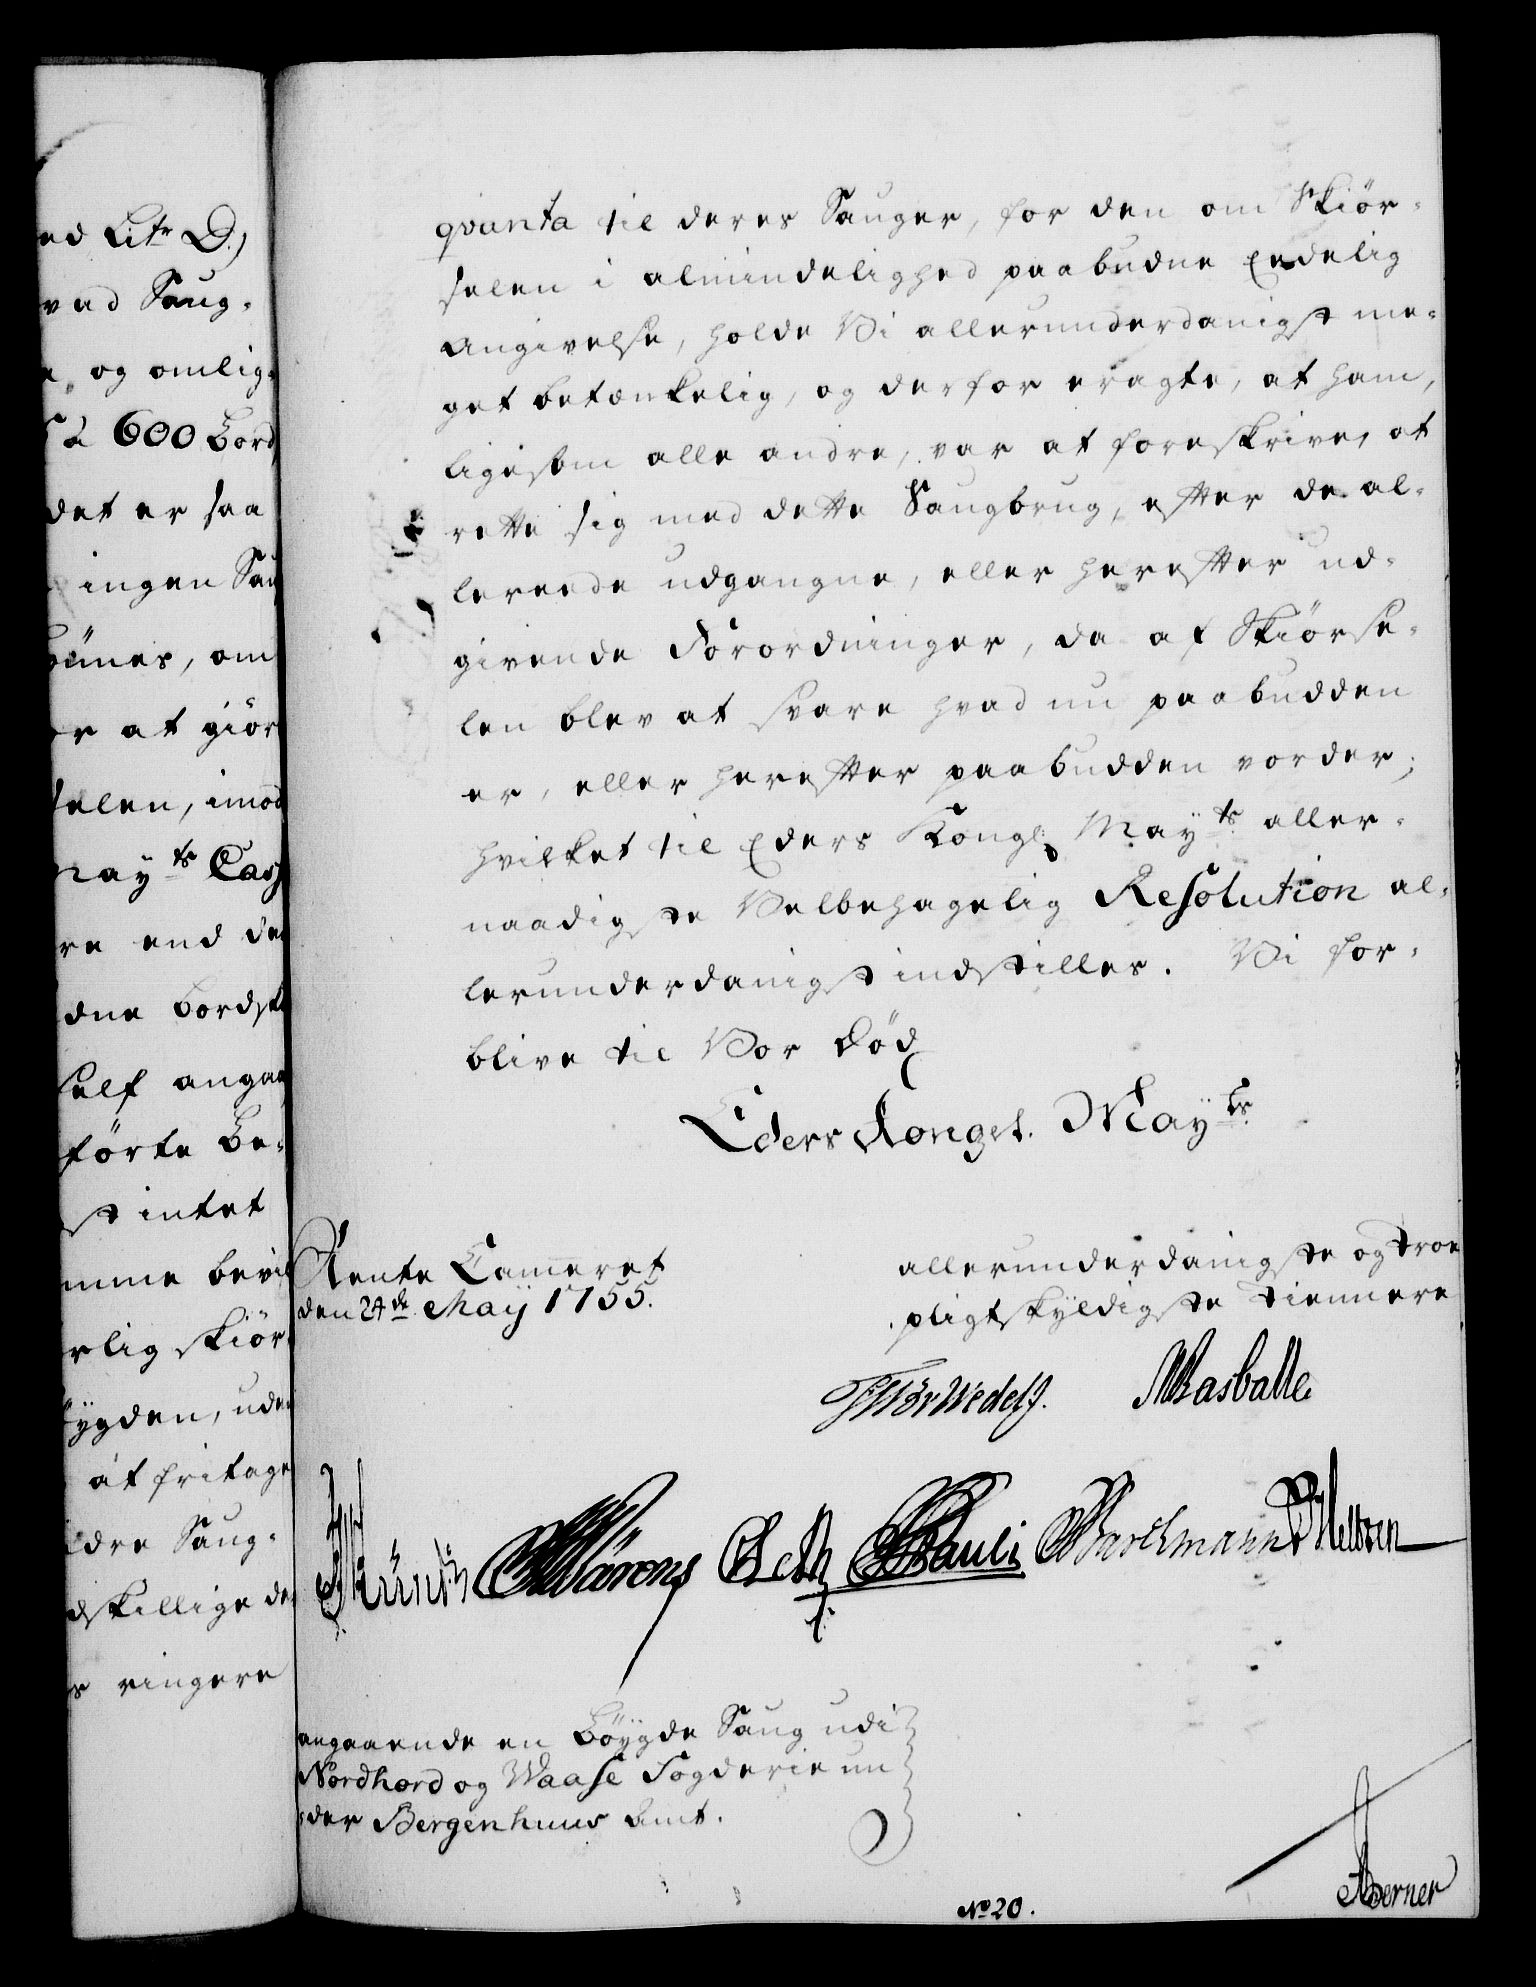 ed Litr D.)
vad Saug-
og omlig-
à 600 Bord
det er saa
ingen Sau
ömes, om
er at giör
selen, imod
Mayts Cass
re end de
dne bordsk
self angaa
förte Be-
st intet
mme bevil
rlig skiör
ygden, uden
at fritage
ldre Saug-
dskillige de
ringere
qvanta til deres Sauger, for den om Skiör-
selen i almindelighed paabudne Eedelig
Angivelse, holde Vi allerunderdanigst me-
get betænkelig, og derfor eragte, at ham,
ligesom alle andre, var at foreskrive, at
rette sig med dette Saugbrug, efter de al-
lereede udgangne, eller herefter ud-
givende Forordninger, da af Skiörse-
len blev at svare hvad nu paabudden
er, eller herefter paabudden vorder;
hvilket til Eders Kongl: Mayts aller-
naadigste Velbehagelig Resolution al-
lerunderdanigst indstilles. Vi for-
blive til Vor Död
Eders Kongel. Mayts
Rente Cameret
den 24de May 1755.
allerunderdanigste og troe
pligtskyldigste Tiennere
Wedelf. Rasballe
Wärens Pauli Barchmann Nelssen
angaaende en Böygde Saug udi
Nordhord og Waase Fogderie un
der Bergenhuus Amt.
No 20.
Berner